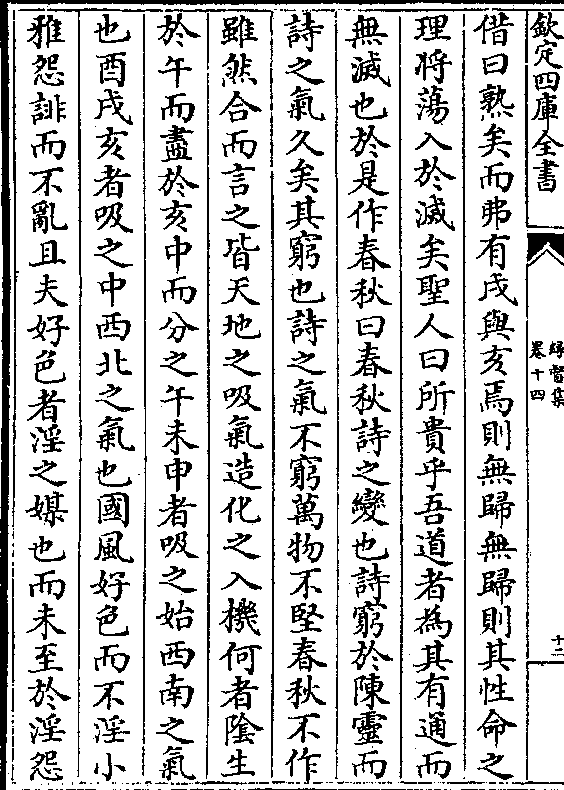 欽定四庫全書
緣督集
卷十四
十二
借曰熟矣而弗有戌與亥焉則無歸無歸則其性命之
理将蕩入於滅矣聖人曰所貴乎吾道者為其有通而
無滅也於是作春秋曰春秋詩之變也詩窮於陳靈而
詩之氣久矣其窮也詩之氣不窮萬物不堅春秋不作
雖然合而言之皆天地之吸氣造化之入機何者陰生
於午而盡於亥中而分之午未申者吸之始西南之氣
也酉戌亥者吸之中西北之氣也國風好色而不淫小
雅怨誹而不亂且夫好色者淫之媒也而未至於淫怨